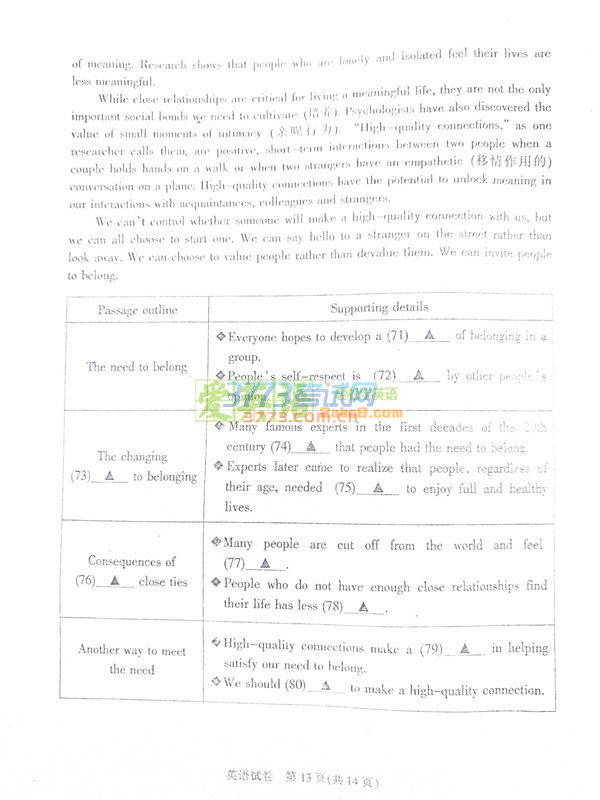 of meaning. Research shows that people who are lonely and isolated feel their lives are
less meaningful.
While close relationships are critical for living a meaningful life, they are not the only
important social bonds we need to cultivate (培养). Psychologists have also discovered the
value of small moments of intimacy (亲昵行为). "High-quality connections," as one
researcher calls them, are positive, short-term interactions between two people when a
couple holds hands on a walk or when two strangers have an empathetic (移情作用的)
conversation on a plane. High-quality connections have the potential to unlock meaning in
our interactions with acquaintances, colleagues and strangers.
We can't control whether someone will make a high-quality connection with us, but
we can all choose to start one. We can say hello to a stranger on the street rather than
look away. We can choose to value people rather than devalue them. We can invite people
to belong.
Passage outline Supporting details
The need to belong
Everyone hopes to develop a (71) ▲ of belonging in a
group.
People's self-respect is (72) ▲ by other people's
opinion.
3773考试网
3773.com.cn
The changing
(73) ▲ to belonging
Many famous experts in the first decades of the 20th
century (74) ▲ that people had the need to belong.
Experts later came to realize that people, regardless of
their age, needed (75) ▲ to enjoy full and healthy
lives.
Consequences of
(76) ▲ close ties
Many people are cut off from the world and feel
(77) ▲ .
People who do not have enough close relationships find
their life has less (78) ▲ .
Another way to meet
the need
High-quality connections make a (79) ▲ in helping
satisfy our need to belong.
We should (80) ▲ to make a high-quality connection.
英语试卷 第13页(共14页)